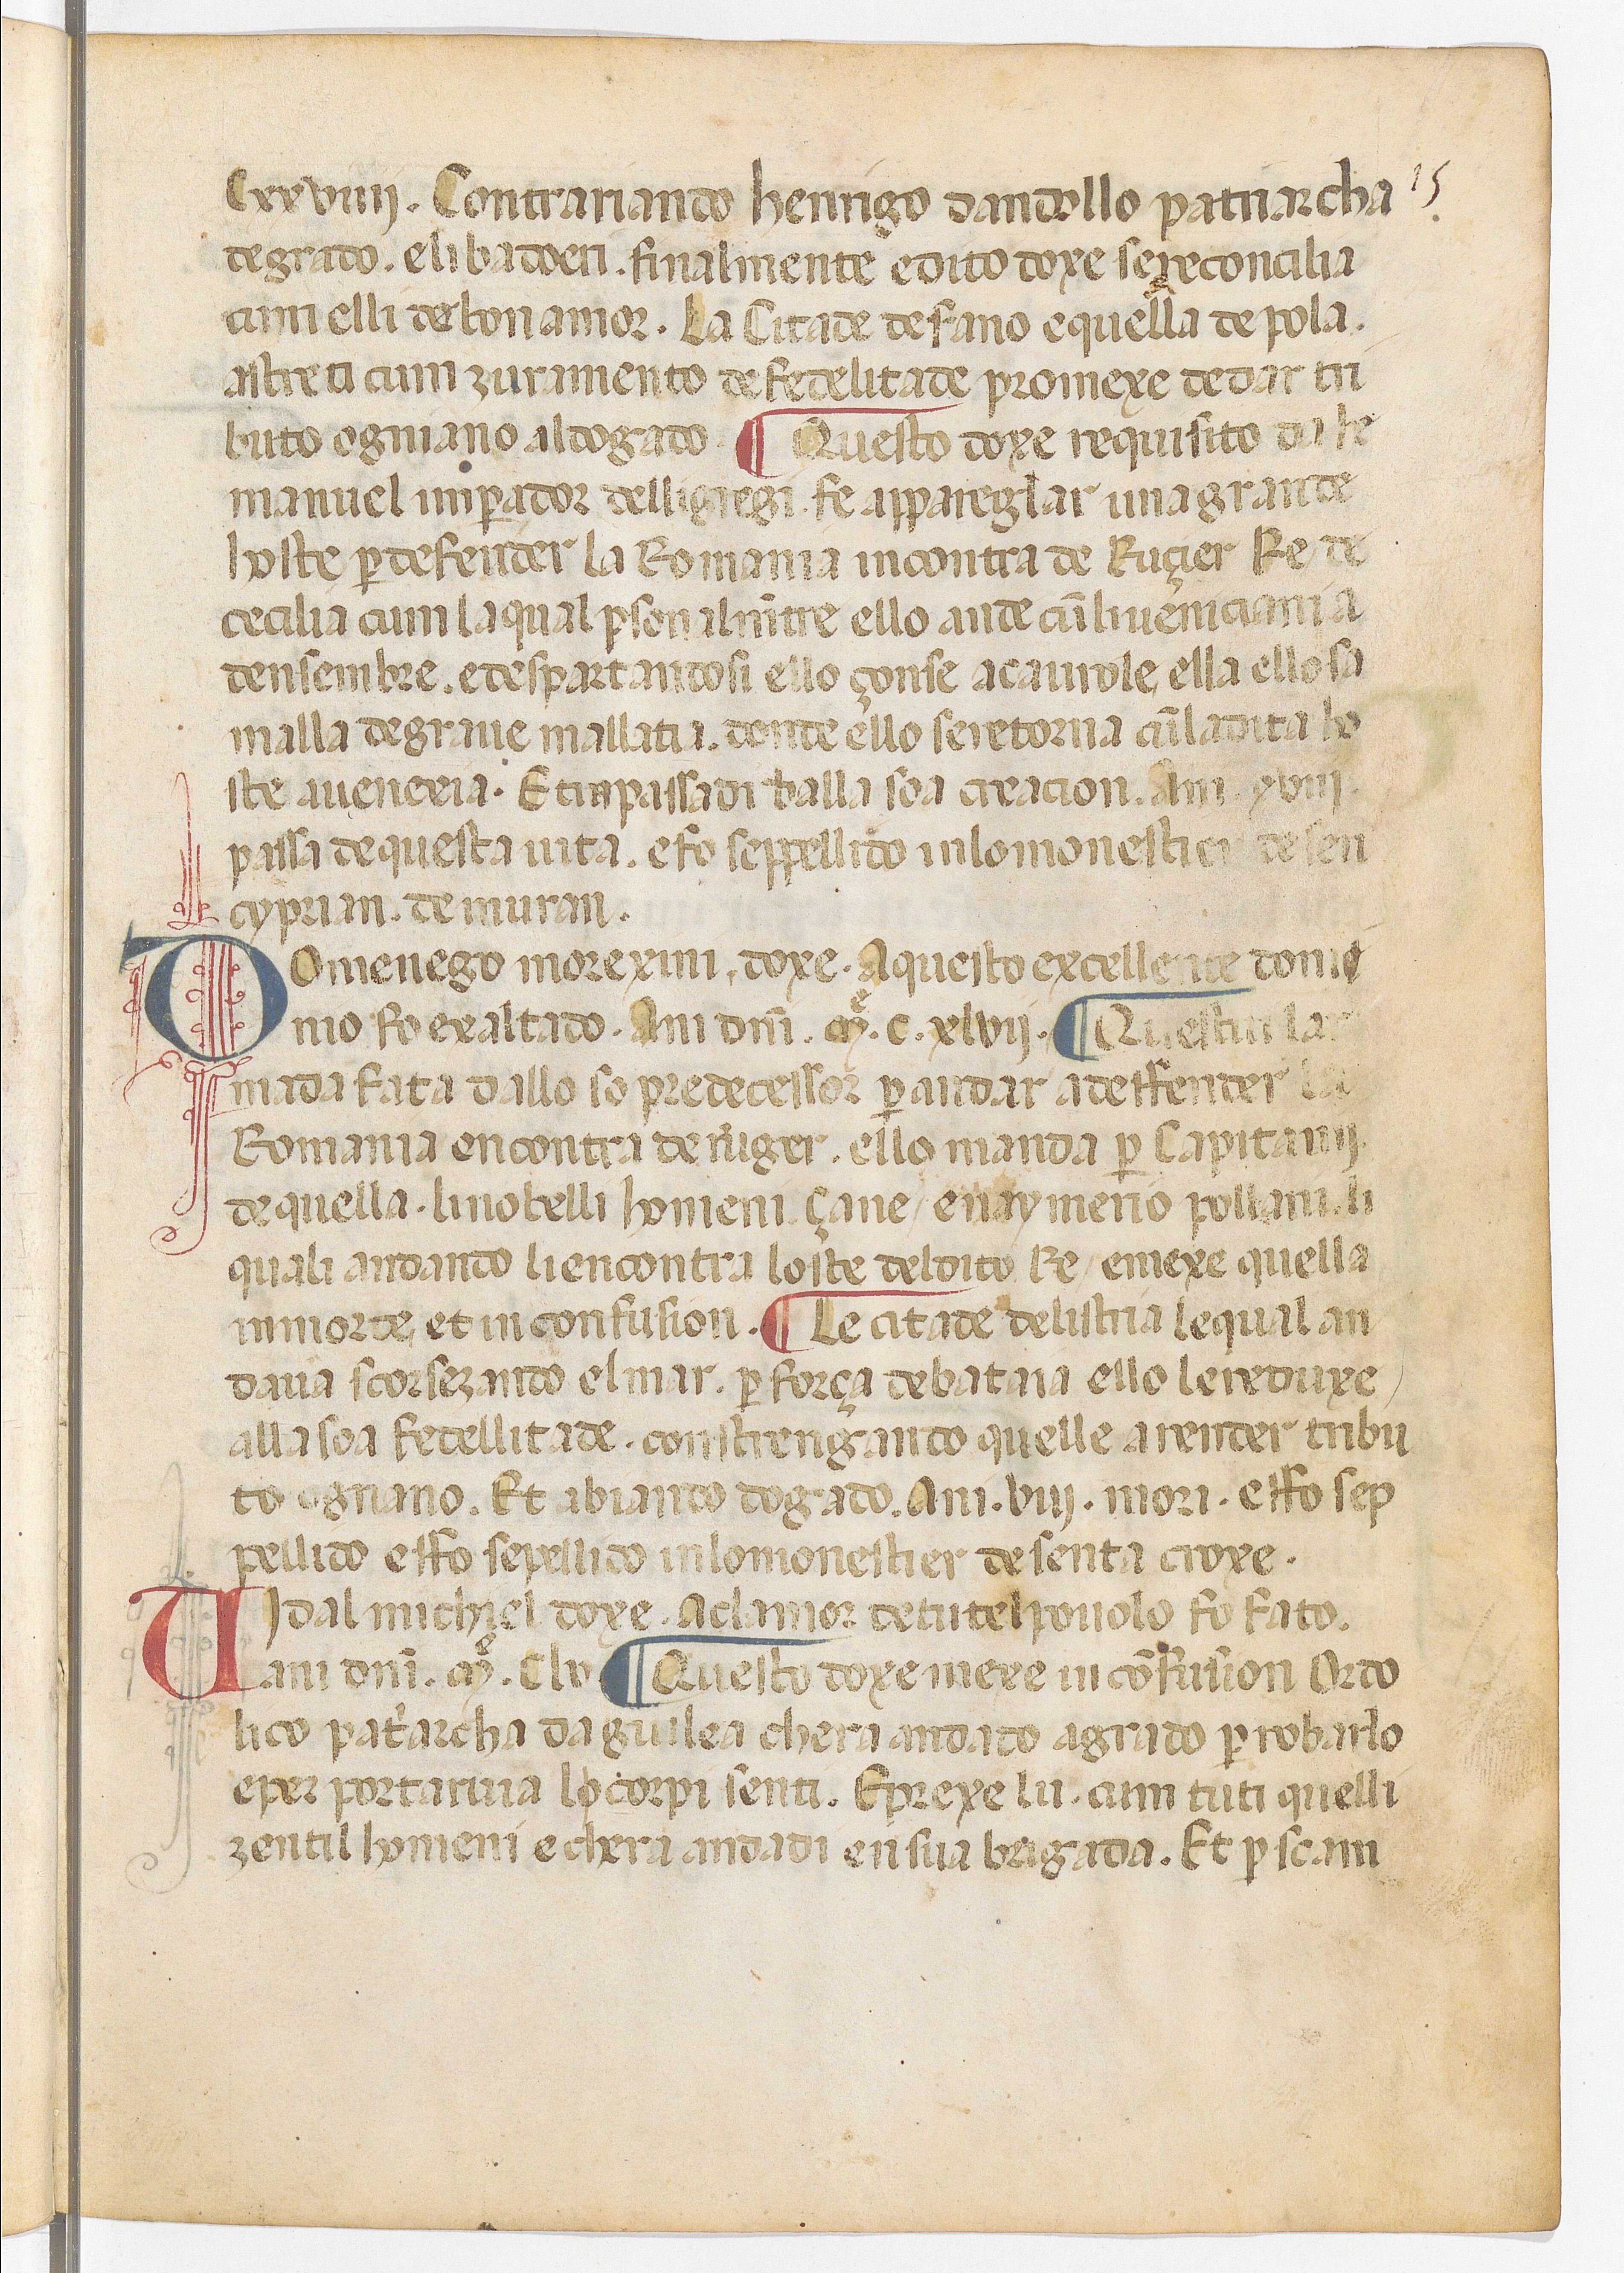 Cxxviiij. Contrariando henrigo dandollo patriarcha 15
de grado. e li badoeri. finalmente e dito doxe se reconcilia
cum elli de bon amor. La Citade de fano e quella de pola.
astreti cum zuramento de fedelitade promexe de dar tri
buto ogni ano al dogado ¶ Questo doxe requisito da he
manuel imꝑador delli gregi. fe appareglar una grande
hoste ꝑ defender la Romania incontra de Ruçier Re de
cecilia cum la qual ꝑsonalmẽtre ello ande cũ li veniciani a
densembre. e despartandosi ello çonse a cavrole, ella ello sa
malla de grave mallatia. dende ello se retorna cũ la dita ho
ste a venexia. Et in passadi dalla soa creacion. Ani. xviij.
passa de questa vita. e fo seppellido in lo monestier de sen
cyprian. de muran.
Domenego morexini, doxe. A questo excellente domi
nio fo exaltado. Ani dnĩ. M̊. C. xlvij. ¶ Questui lar
mada fata dallo so predecessor ꝑ andar a deffender la
Romania encontra de ruger. ello manda ꝑ Capitanij
de quella. li nobelli homeni çane / e naymerio pollani. li
quali andando li encontra loste del dito Re / e mexe quella
in morte, et in confusion. ¶ Le citade de listria le qual an
dava scorsezando el mar. ꝑ força de bataia ello le reduxe
alla soa fedellitade. constrengando quelle a render tribu
to ogn ano. Et abiando dogado. Ani. viij. mori. effo sep
pellido effo sepellido in lo monestier de senta croxe.
Vidal michiel doxe. A clamor de tutel povolo fo fato.
ani dnĩ. M̊. Clv ¶ Questo doxe mexe in cõfusion Ordo
lico pat'archa daguilea chera andado a grado ꝑ robarlo
e per portar via lo corpi senti. E prexe lu. cum tuti quelli
zentil homeni e chera andadi en sua brigada. Et ꝑ scam